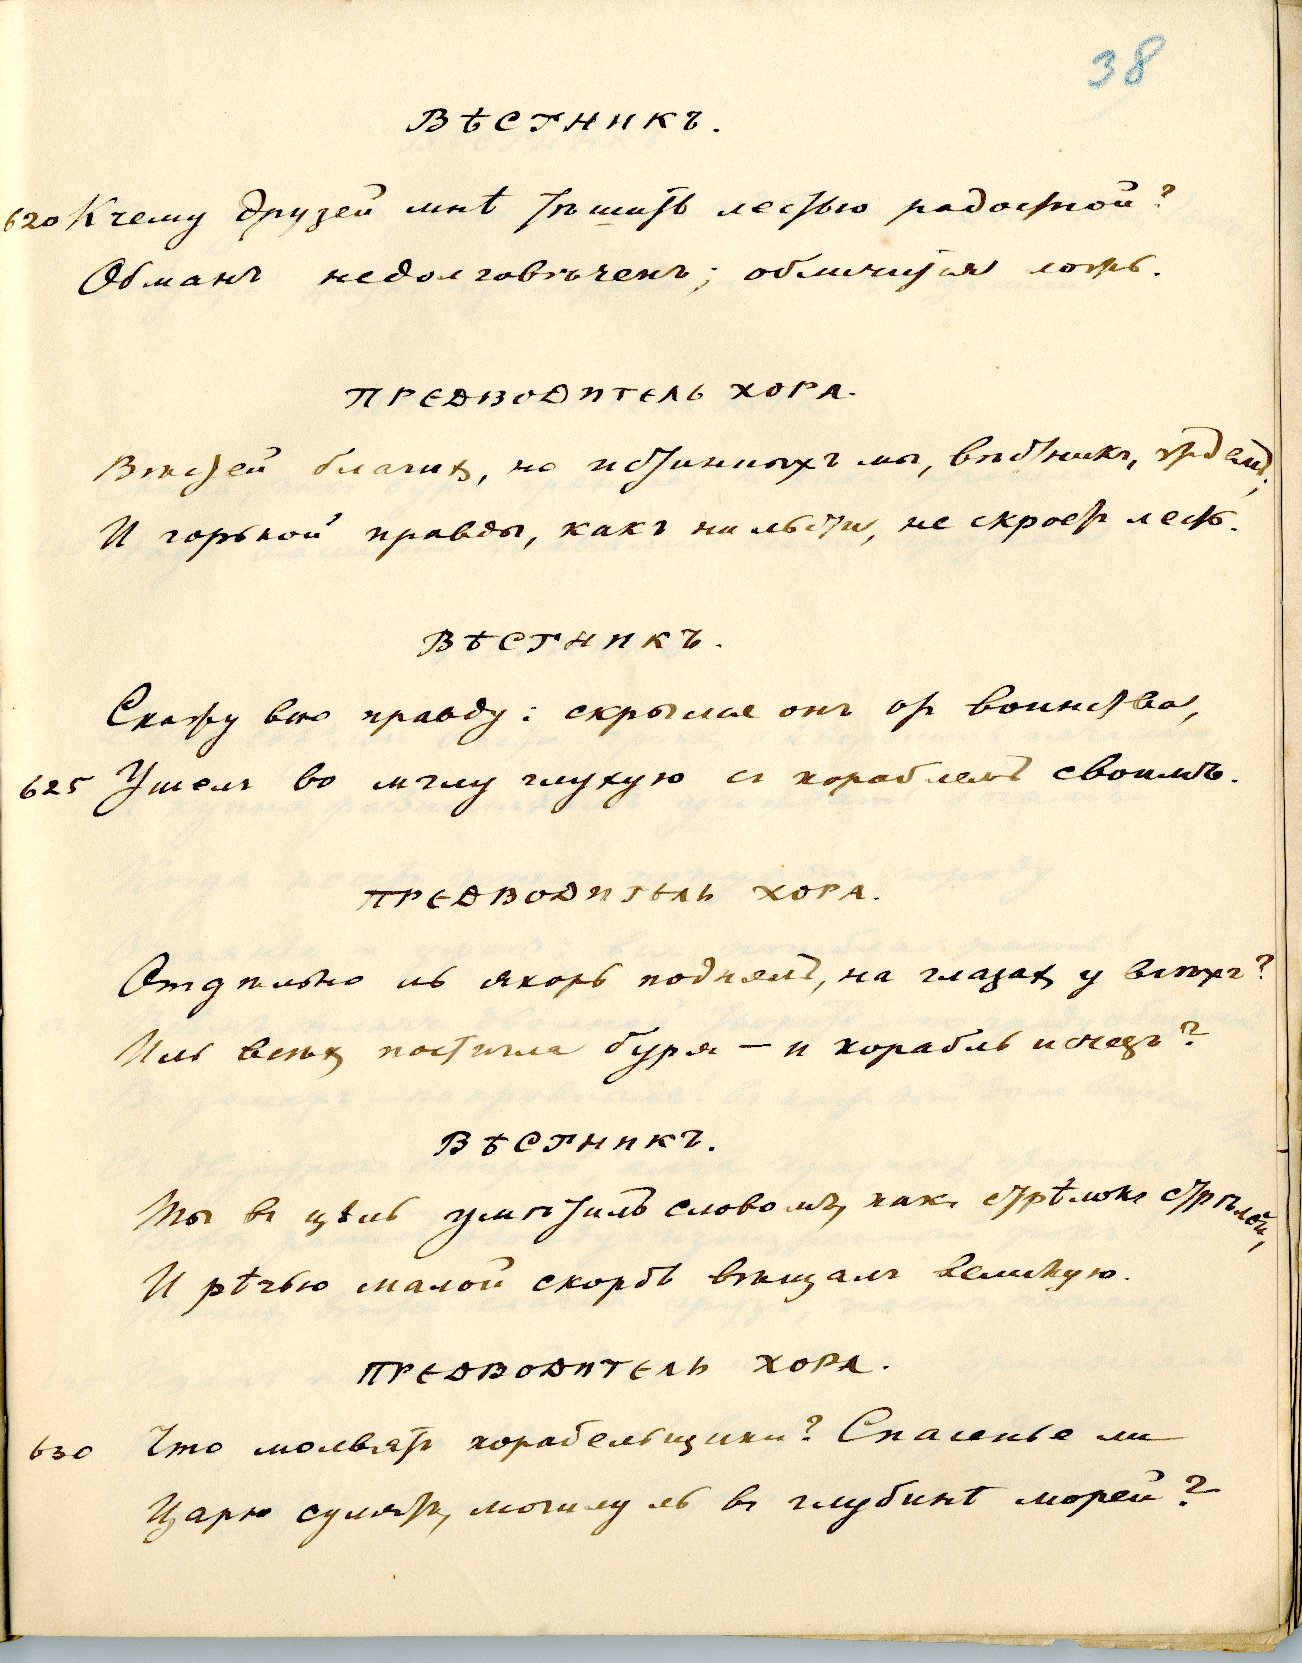 38
ВѢСТНИКЪ.
620 Къ чему друзей мнѣ тѣшить лестью радостной?
Обманъ недолговѣченъ; обличится ложь.
ПРЕДВОДИТЕЛЬ ХОРА.
Вѣстей благихъ, но истинныхъ мы, вѣстникъ, ждемъ;
И горькой правды, какъ ни льсти, не скроетъ лесть.
ВѢСТНИКЪ.
Скажу всю правду: скрылся онъ отъ воинства,
625 Ушелъ во мглу глухую съ кораблемъ своимъ.
ПРЕДВОДИТЕЛЬ ХОРА.
Отдѣльно ль якорь поднялъ, на глазахъ у всѣхъ?
Иль всѣхъ постигла буря — и корабль исчезъ?
ВѢСТНИКЪ.
Ты въ цѣль умѣтилъ словомъ, какъ стрѣлокъ стрѣлой,
И рѣчью малой скорбь вѣщалъ великую.
ПРЕДВОДИТЕЛЬ ХОРА.
630 Что молвятъ корабельщики? Спасенье ли
Царю сулятъ, могилу ль въ глубинѣ морей?